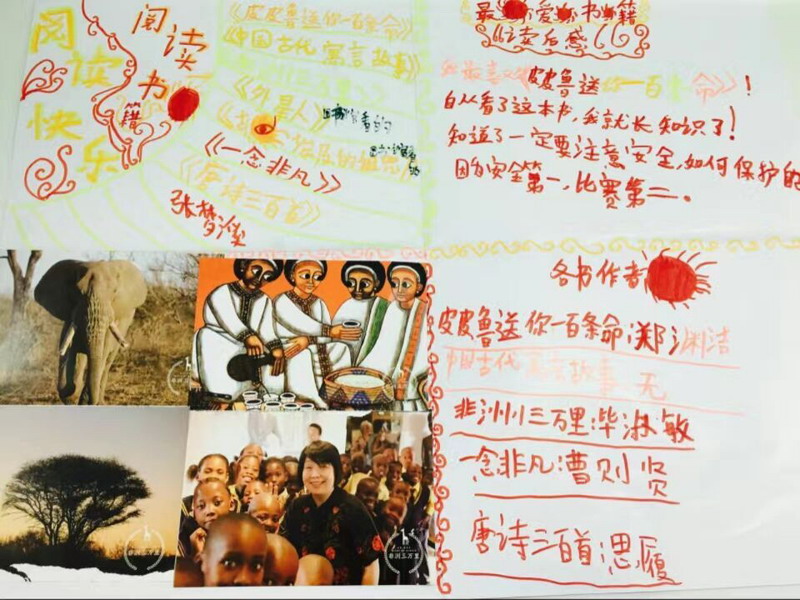 阅读快乐
阅读书籍
《皮皮鲁送你一百条命》
《中国古代寓言故事》
《外星人》
《一念非凡》
《唐诗三百首》
张梦
最爱书籍
读后感
我最喜欢皮皮鲁送你一百条命》!
自从看了这本书,我就长知识了!
知道了一定要注意安全,如何保护的
因为安全第一,比赛第二。
各书作者
皮皮鲁送你一百条命 郑渊洁
中国古代寓言故事 无
非洲三万里 毕淑敏
一念非凡 曹则贤
唐诗三百首 思履
非洲三万里